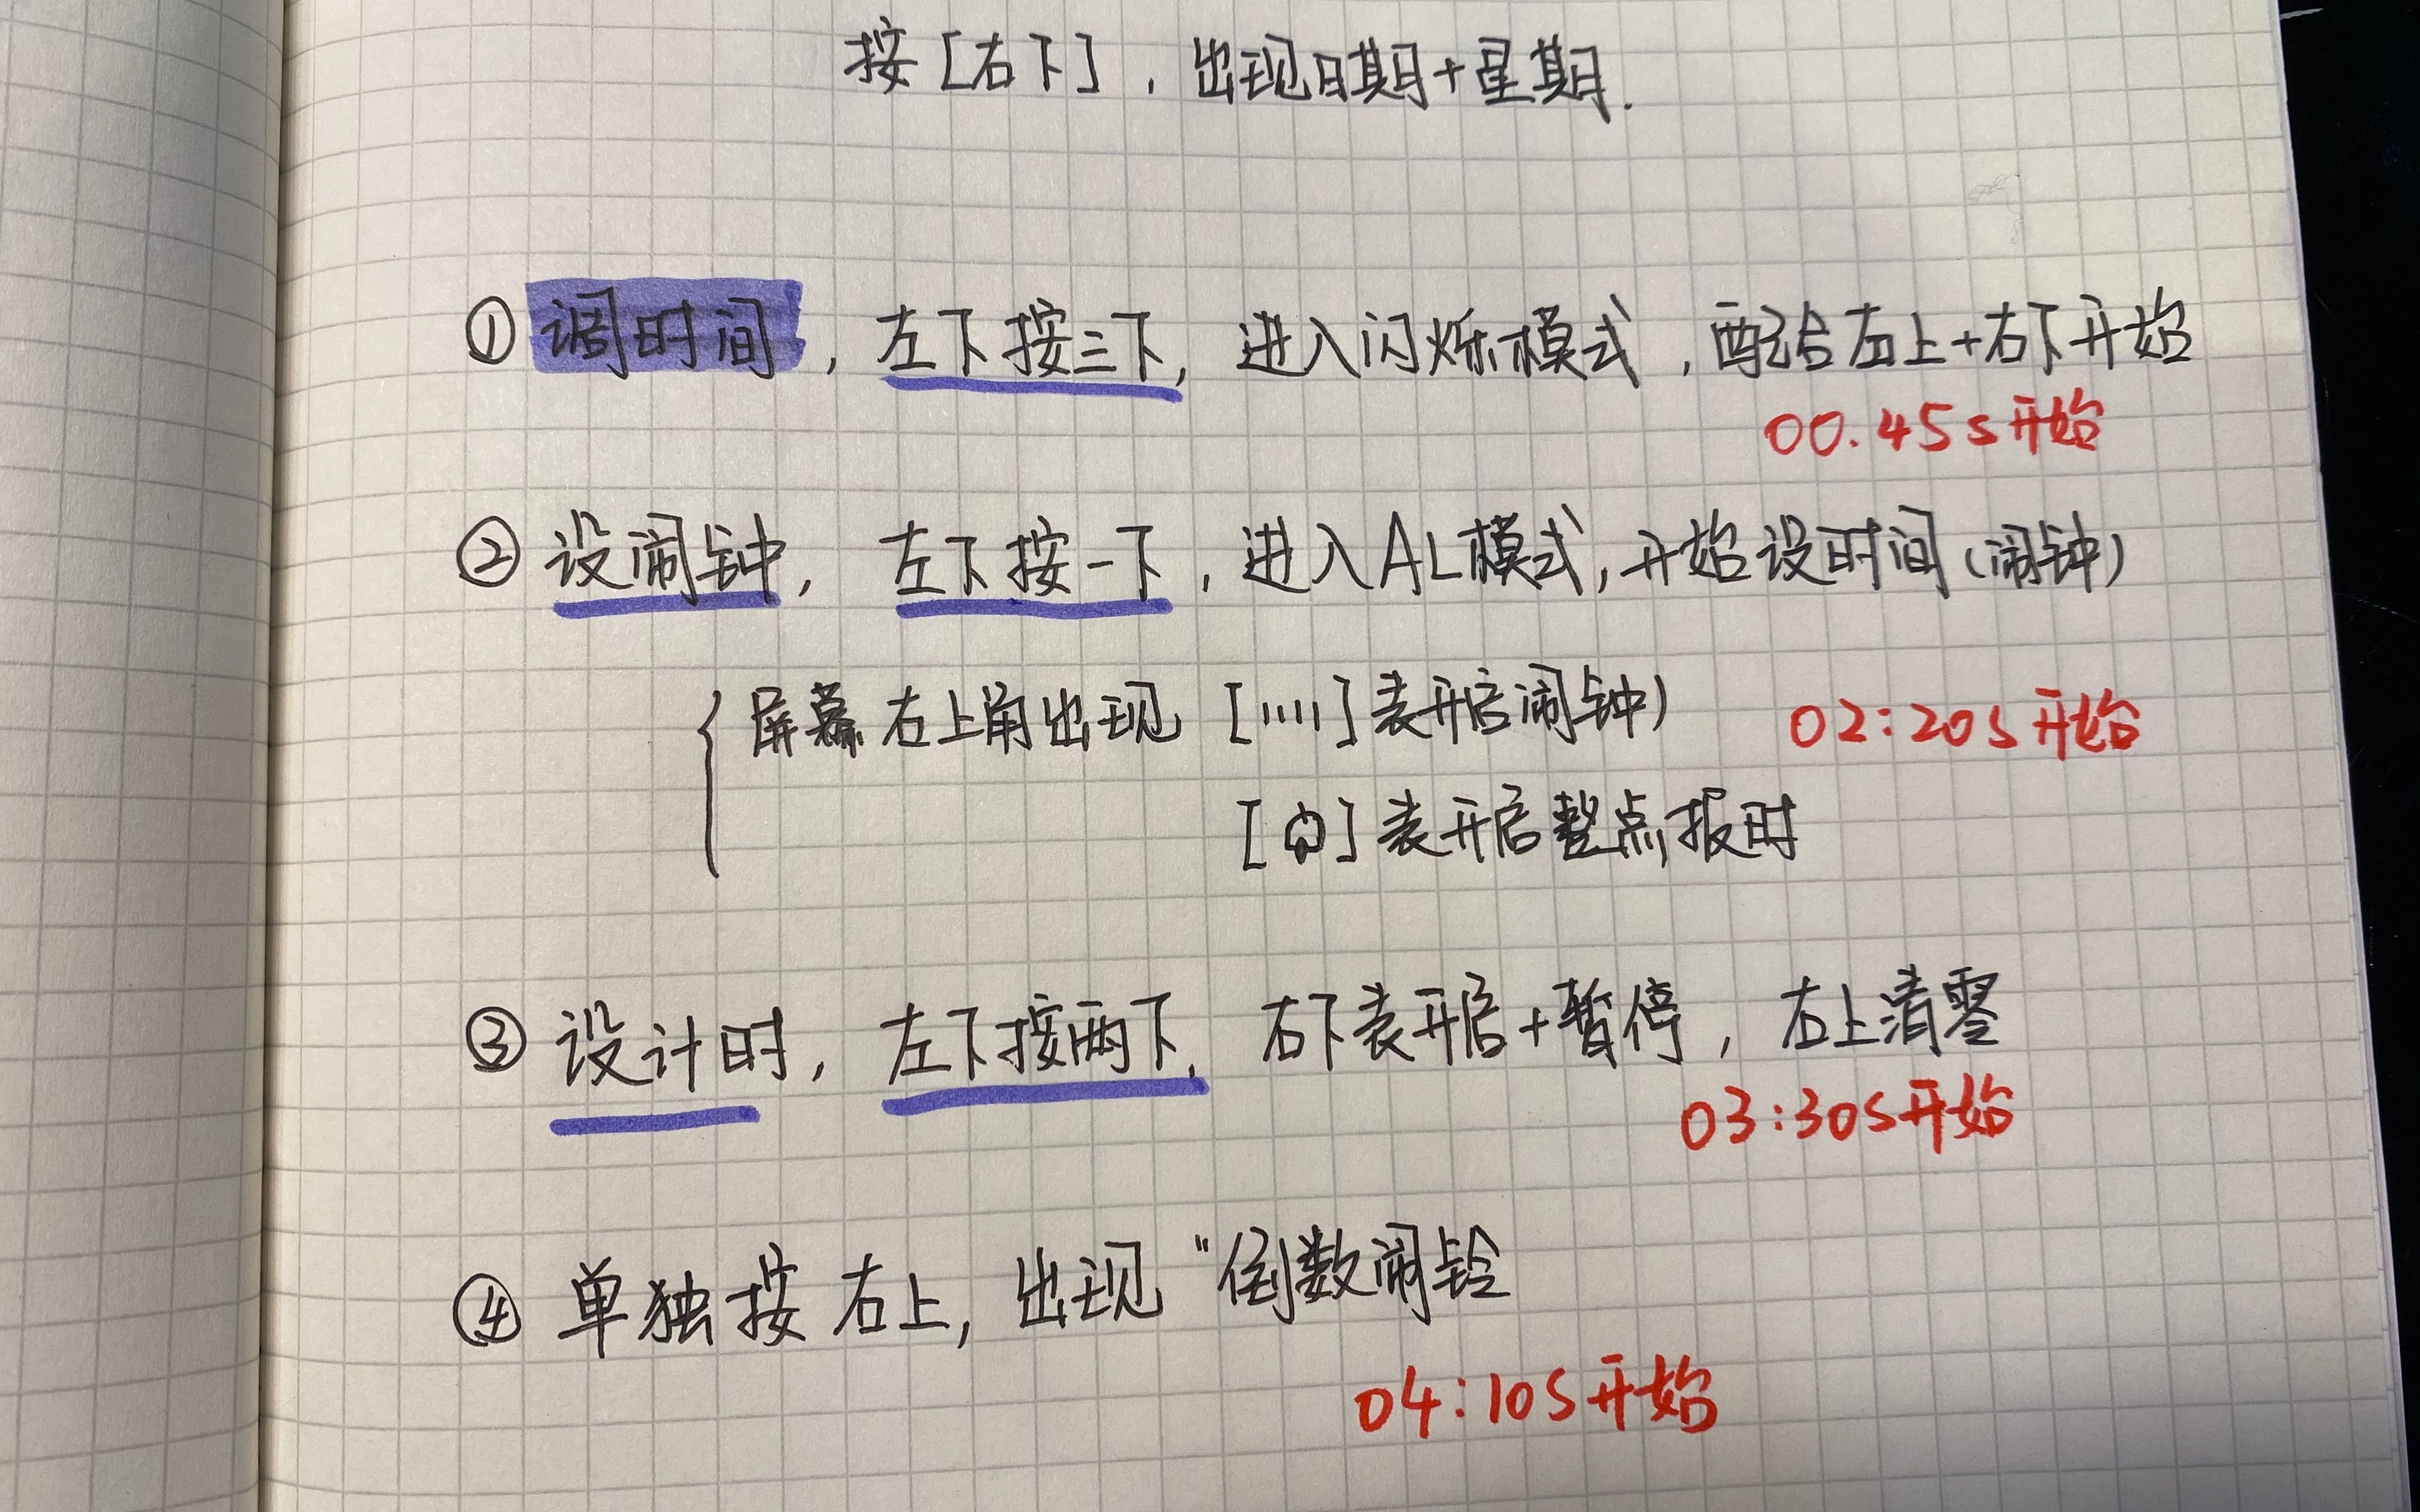 按[右下],出现日期+星期.
①调时间,左下按三下,进入闪烁模式,配合右上+右下开始
00.45s开始
②设闹钟,左下按一下,进入AL模式,开始设时间(闹钟)
屏幕右上角出现[ıııı]表开启闹钟)
02:20s开始
[🔔]表开启整点报时
③设计时,左下按两下,右下表开启+暂停,右上清零
03:30s开始
④单独按右上,出现"倒数闹铃
04:10s开始